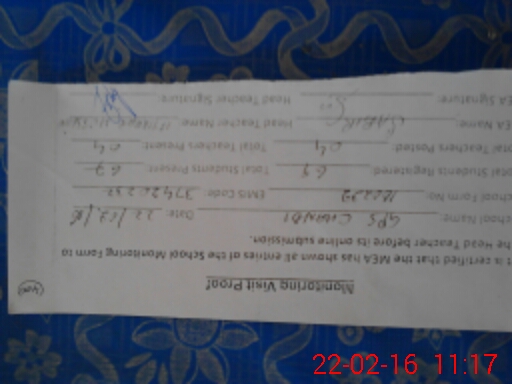 Monitoring Visit Proof
t is certified that the MEA has shown all entries of the School Monitoring Form to
he Head Teacher before its online submission.
chool Name: GPS Date: 22/02/16
chool Form No: EMIS Code:
otal Students Registered: 69 Total Students Present: 69
otal Teachers Posted: 04 Total Teachers Present: 04
EA Name: Head Teacher Name:
EA Signature: Head Teacher Signature:
22-02-16 11:17